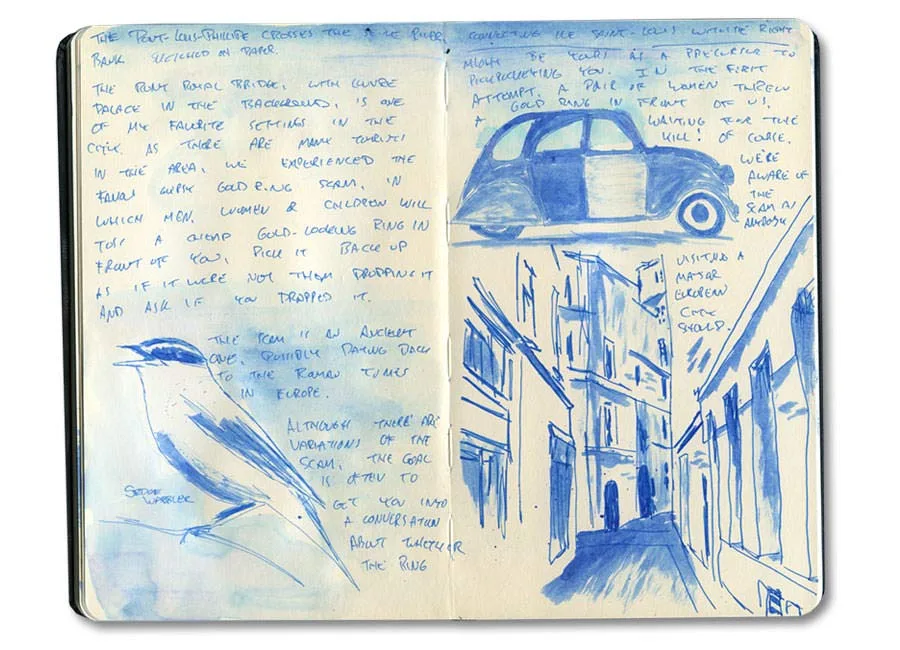 THE PONT-LOUIS-PHILIPPE CROSSES THE RIVER,
BANK SKETCHED ON PAPER.
THE PONT ROYAL BRIDGE, WITH LOUVRE
PALACE IN THE BACKGROUND, IS ONE
OF MY FAVORITE SETTINGS IN THE
CITY. AS THERE ARE MANY TOURISTS
IN THE AREA, WE EXPERIENCED THE
FAMOUS GYPSY GOLD RING SCAM, IN
WHICH MEN, WOMEN & CHILDREN WILL
TOSS A CHEAP GOLD-LOOKING RING IN
FRONT OF YOU, PICK IT BACK UP
AS IF IT WERE NOT THEM DROPPING IT
AND ASK IF YOU DROPPED IT.
THE SCAM IS AN ANCIENT
ONE, POSSIBLY DATING BACK
TO THE ROMAN TIMES
IN EUROPE.
ALTHOUGH THERE ARE
VARIATIONS OF THE
SCAM, THE GOAL
IS OFTEN TO
GET YOU INTO
A CONVERSATION
ABOUT WHETHER
THE RING
SEDGE
WARBLER
CONNECTING THE SAINT-LOUIS WITH THE RIGHT
MIGHT BE YOURS AS A PRECURSOR TO
PICKPOCKETING YOU. IN THE FIRST
ATTEMPT, A PAIR OF WOMEN THREW
A GOLD RING IN FRONT OF US,
WAITING FOR THE
KILL! OF COURSE,
WE'RE
AWARE OF
THE
SCAM AS
ANYBODY
VISITING A
MAJOR
EUROPEAN
CITY
SHOULD.